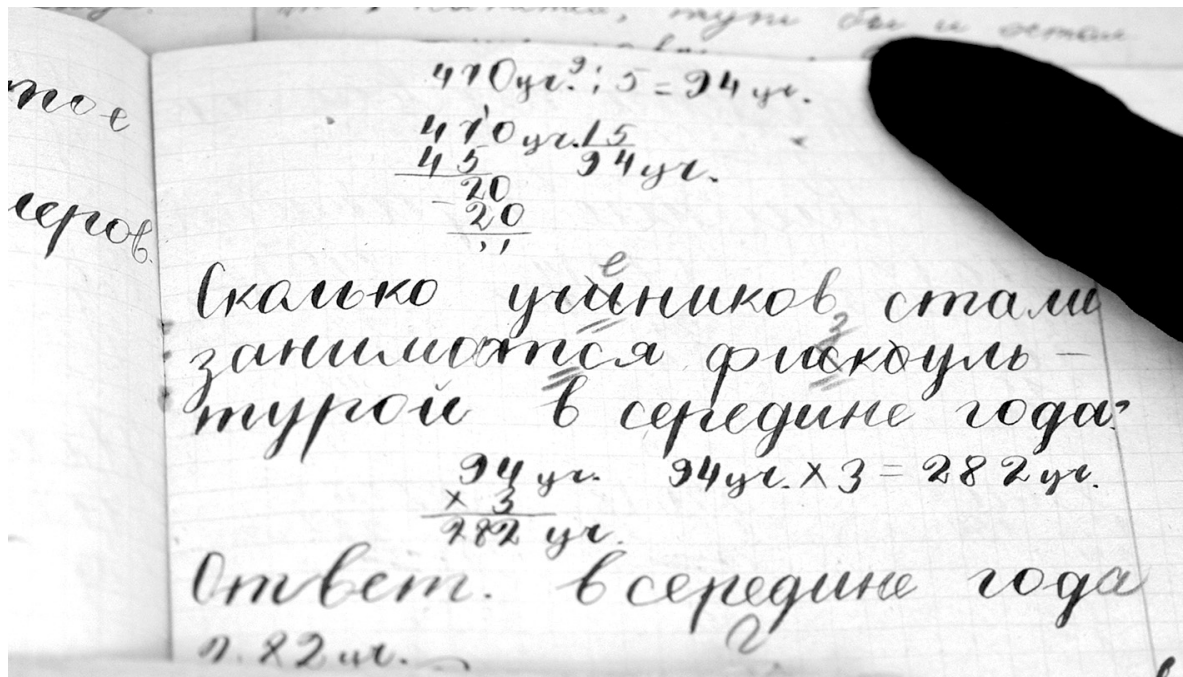 тое
леров.
470 уч. : 5 = 94 уч.
470 уч. | 5
45 94 уч.
20
20
Сколько учиников стали
заниматся фискуль-
турой в середине года?
94 уч. 94 уч. × 3 = 282 уч.
× 3
282 уч.
Ответ. в середине года
282 уч.